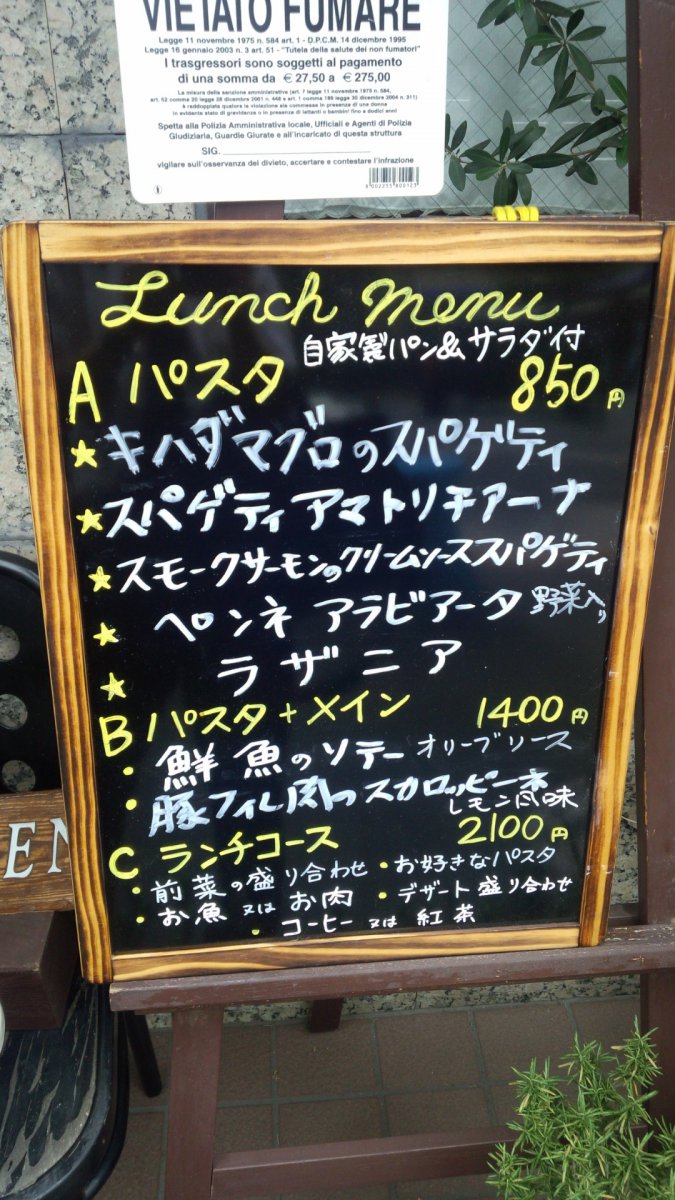 VIETATO FUMARE
Legge 11 novembre 1975 n. 584 art. 1 - D.P.C.M. 14 dicembre 1995
Legge 16 gennaio 2003 n. 3 art. 51 - "Tutela della salute dei non fumatori"
I trasgressori sono soggetti al pagamento
di una somma da € 27,50 a € 275,00
La misura della sanzione amministrativa (art. 7 legge 11 novembre 1975 n. 584,
art. 52 comma 20 legge 28 dicembre 2001 n. 448 e art. 1 comma 189 legge 30 dicembre 2004 n. 311)
è raddoppiata qualora la violazione sia commessa in presenza di una donna
in evidente stato di gravidanza o in presenza di lattanti o bambini fino a dodici anni
Spetta alla Polizia Amministrativa locale, Ufficiali e Agenti di Polizia
Giudiziaria, Guardie Giurate e all'incaricato di questa struttura
SIG.
vigilare sull'osservanza del divieto, accertare e contestare l'infrazione
8 002255 800123
Lunch menu
自家製パン&サラダ付
A パスタ 850円
★キハダマグロのスパゲティ
★スパゲティアマトリチアーナ
★スモークサーモンのクリームソーススパゲティ
★ペンネ アラビアータ 野菜入り
★ラザニア
B パスタ+メイン 1400円
・鮮魚のソテー オリーブソース
・豚フィレ肉のスカロッピーネ
レモン風味
C ランチコース 2100円
・前菜の盛り合わせ ・お好きなパスタ
・お魚 又は お肉 ・デザート盛り合わせ
・コーヒー 又は 紅茶
EN